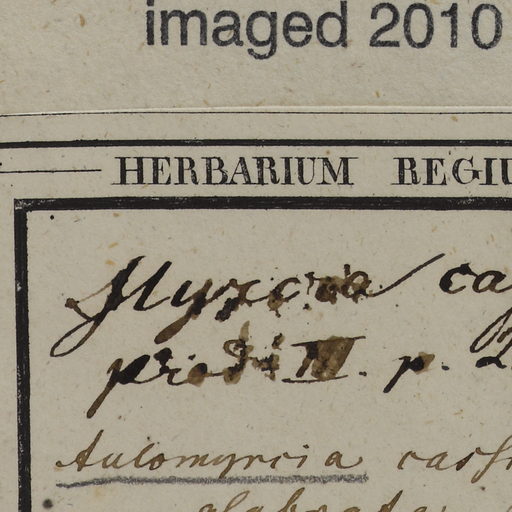 imaged 2010
HERBARIUM REGIU
Myrcia ca
prod. III. p. 2
Aulomyrcia cass
glabrata